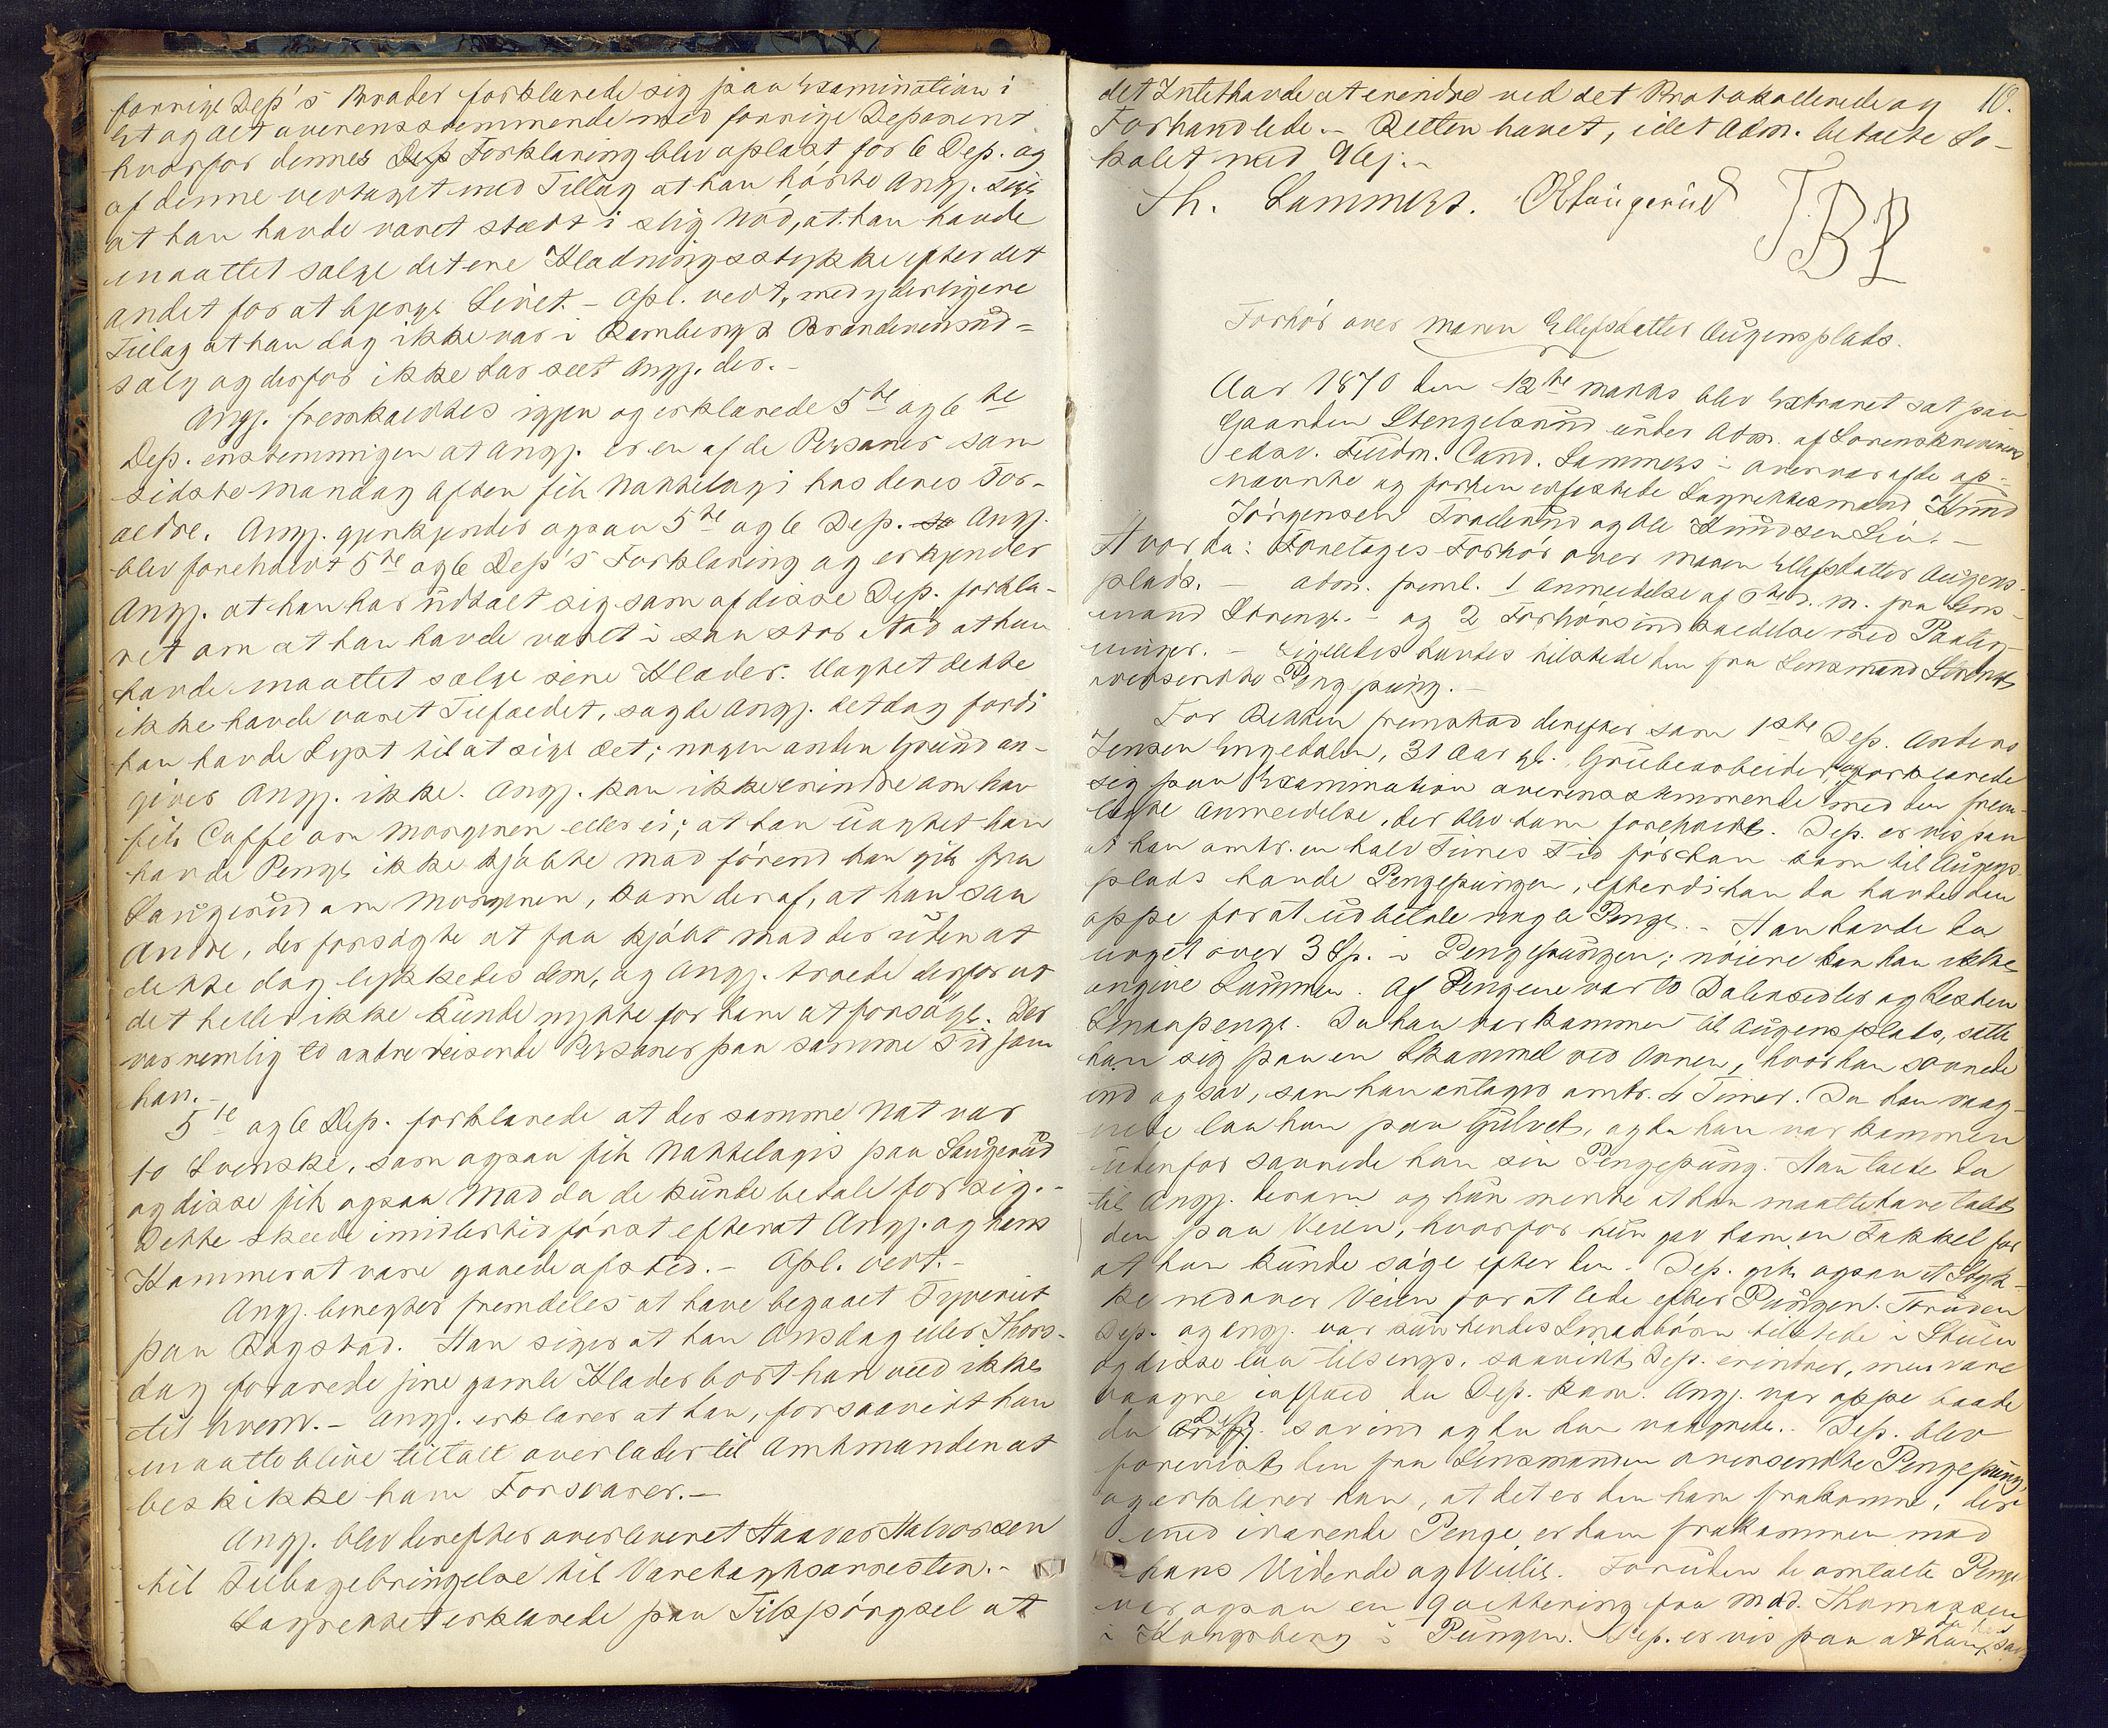 forrige Dep's Broder forklarede sig paa Examination i
Et og Alt overensstemmende med forrige Deponent
hvorfor dennes Dep Forklaring blev oplæst for 6 Dep. og
af denne vedtaget med Tillæg at han hørte Ang. sige
at han havde været stædt i slig Nød, at han havde
maattet sælge det ene Klædningsstykke efter det
andet for at bjerge Livet. – Opl. vedt. med yderligere
Tillæg at han dog ikke var i Rembergs Brændeviinsud-
salg og derfor ikke har seet Angj. der. –
Angj. fremkaldtes igjen og erklærede 5te og 6te
Dep. enstemmigen at Angj. er en af de Personer som
sidste Mandag Aften fik Nattelogi hos deres For-
ældre. Angj. gjenkjender ogsaa 5te og 6 Dep. Angj.
blev foreholdt 5te og 6 Dep's Forklaring og erkjender
Angj. at han har udtalt sig som af disse Dep. forkla-
ret om at han havde været i saa stor Nød at han
havde maattet sælge sine Klæder. Uagtet dette
ikke havde været Tilfældet, sagde Angj. det dog fordi
han havde Lyst til at sige det; nogen anden Grund an-
giver Angj. ikke. Angj. kan ikke erindre om han
fik Caffe om Morgenen eller ei; at han uagtet han
havde Penge ikke kjøbte Mad førend han gik fra
Laugerud om Morgenen, kom deraf, at han saa
Andre, der forsøgte at faa kjøbt Mad der uden at
dette dog lykkedes dem, og Angj. troede derfor at
det heller ikke kunde nytte for ham at forsøge. Der
var nemlig to andre reisende Personer paa samme Tid som
han. –
5te og 6 Dep. forklarede at der samme Nat var
to Svenske, som ogsaa fik Nattelogis paa Laugerud
og disse fik ogsaa Mad da de kunde betale for sig. –
Dette skede imidlertid først efterat Angj. og hans
Kammerat vare gaaede afsted. – Opl. vedt. –
Angj. benegter fremdeles at have begaaet Tyveriet
paa Bogstad. Han siger at han Onsdag eller Thors-
dag forærede sine gamle Klæder bort han veed ikke
til hvem. – Angj. erklærer at han, forsaavidt han
maatte blive tiltalt overlader til Amtmanden at
beskikke ham Forsvarer. –
Angj. blev derefter overleveret Haavor Halvorsen
til Tilbagebringelse til Varetægtsarresten. –
Lagrettet erklærede paa Tilspørgsel at
det Intet havde at erindre ved det Protokollerede og 10.
Forhandlede. – Retten hævet, idet Adm. betalte Lo-
kalet med
Th. Lammers. OLaugerud TBP
Forhør over Maren Ellefsdatter Augensplads.
Aar 1870 den 12te Marts blev Extraret sat paa
Gaarden Stengelsrud under Adm. af Sorenskriverens
edsv. Fuldm. Cand. Lammers i Overvær af de op-
nævnte og forhen edfæstede Lagrettesmænd Knud
Jørgensen Traaerud og Ole Knudsen Lia. –
Hvorda: Foretoges Forhør over Maren Ellefsdatter Augens-
plads. – Adm. freml. 1 Anmeldelse af 5te d. M. fra Lens-
mand Lorenz. – og 2 Forhørsindkaldelse med Paateg-
ninger. – Ligeledes havdes tilstede den fra Lensmand Lorentz
oversendte Pengepung. –
For Retten fremstod derefter som 1ste Dep. Anders
Jensen Engedalen, 31 Aar gl. Grubearbeider, og forklarede
sig paa Examination overensstemmende med den frem-
lagte Anmeldelse, der blev ham foreholdt. Dep. er vis paa
at han omtr. en halv Times Tid før han kom til Augens-
plads havde Pengepungen, efterdi han da havde den
oppe for at udbetale nogle Penge. – Han havde da
noget over 3 Sp. i Pengepungen; nøiere kan han ikke
angive Summen. Af Pengene var to Dalersedler og Resten
Smaapenge. Da han var kommen til Augensplads, satte
han sig paa en Skammel ved Ovnen, hvor han sovnede
ind og sov, som han antager omtr. 4 Timer. Da han vaag-
nede laa han paa Gulvet, og da han var kommen
udenfor savnede han sin Pengepung. Han talte da
til Angj. derom og hun mente at han maatte have tabt
den paa Veien, hvorfor hun gav ham en Fakkel for
at han kunde søge efter den. Dep. gik ogsaa et Styk-
ke nedover Veien for at lede efter Pungen. Foruden
Dep. og Angj. var kun hendes Smaabørn tilstede i Stuen
og disse laa tilsengs, saavidt Dep. erindrer, men vare
vaagne ialfald da Dep. kom. Angj. var oppe baade
da Dep. sov ind og da han vaagnede. – Dep. blev
forevist den fra Lensmanden oversendte Pengepung,
og erklærer han, at det er den ham frakomne, der
med iværende Penge er ham frakommen mod
hans Vidende og Villie. Foruden de omtalte Penge
var ogsaa en Qvittering fra Mad. Thomassen
i Kongsberg i Pungen. Dep. er vis paa at han